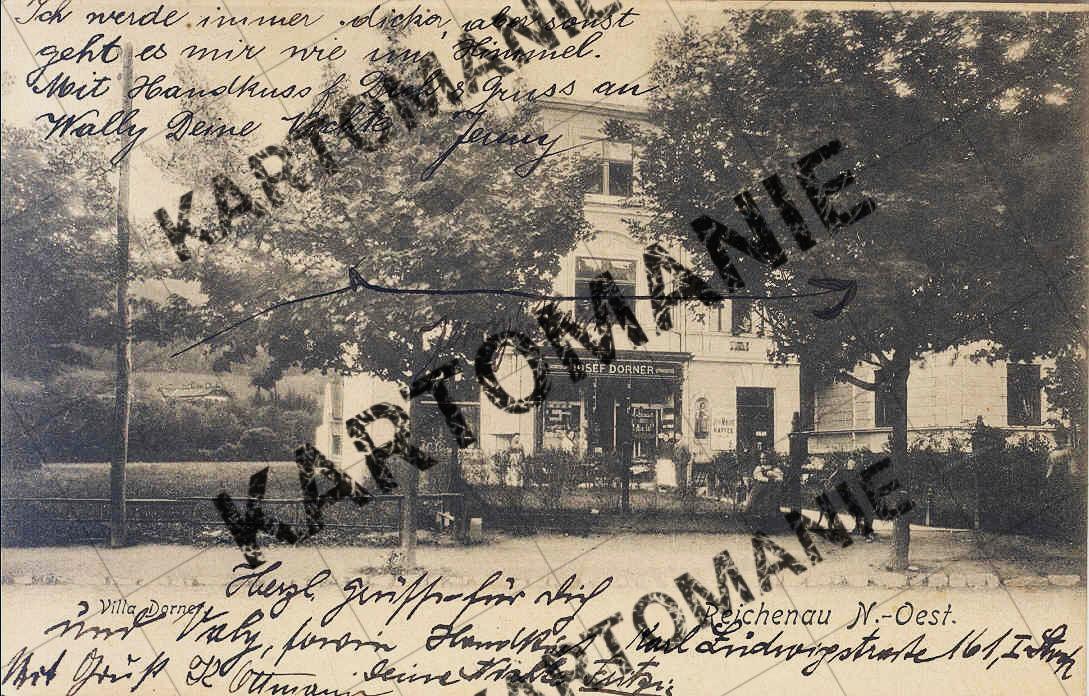 Ich werde immer dicker, aber sonst
geht es mir wie im Himmel.
Mit Handkuss f. Dich & Gruss an
Wally Deine Nichte Jenny
JOSEF DORNER
KAFFEE
Villa Dorner
Reichenau N.-Oest.
Herzl. Grüsse für Dich
und Valy, sowie Handküsse
Deine Nichte
Karl Ludwigstraße 161, I. Stock
Mit Gruß K Ottmann
KARTOMANIE
KARTOMANIE
KARTOMANIE
KARTOMANIE